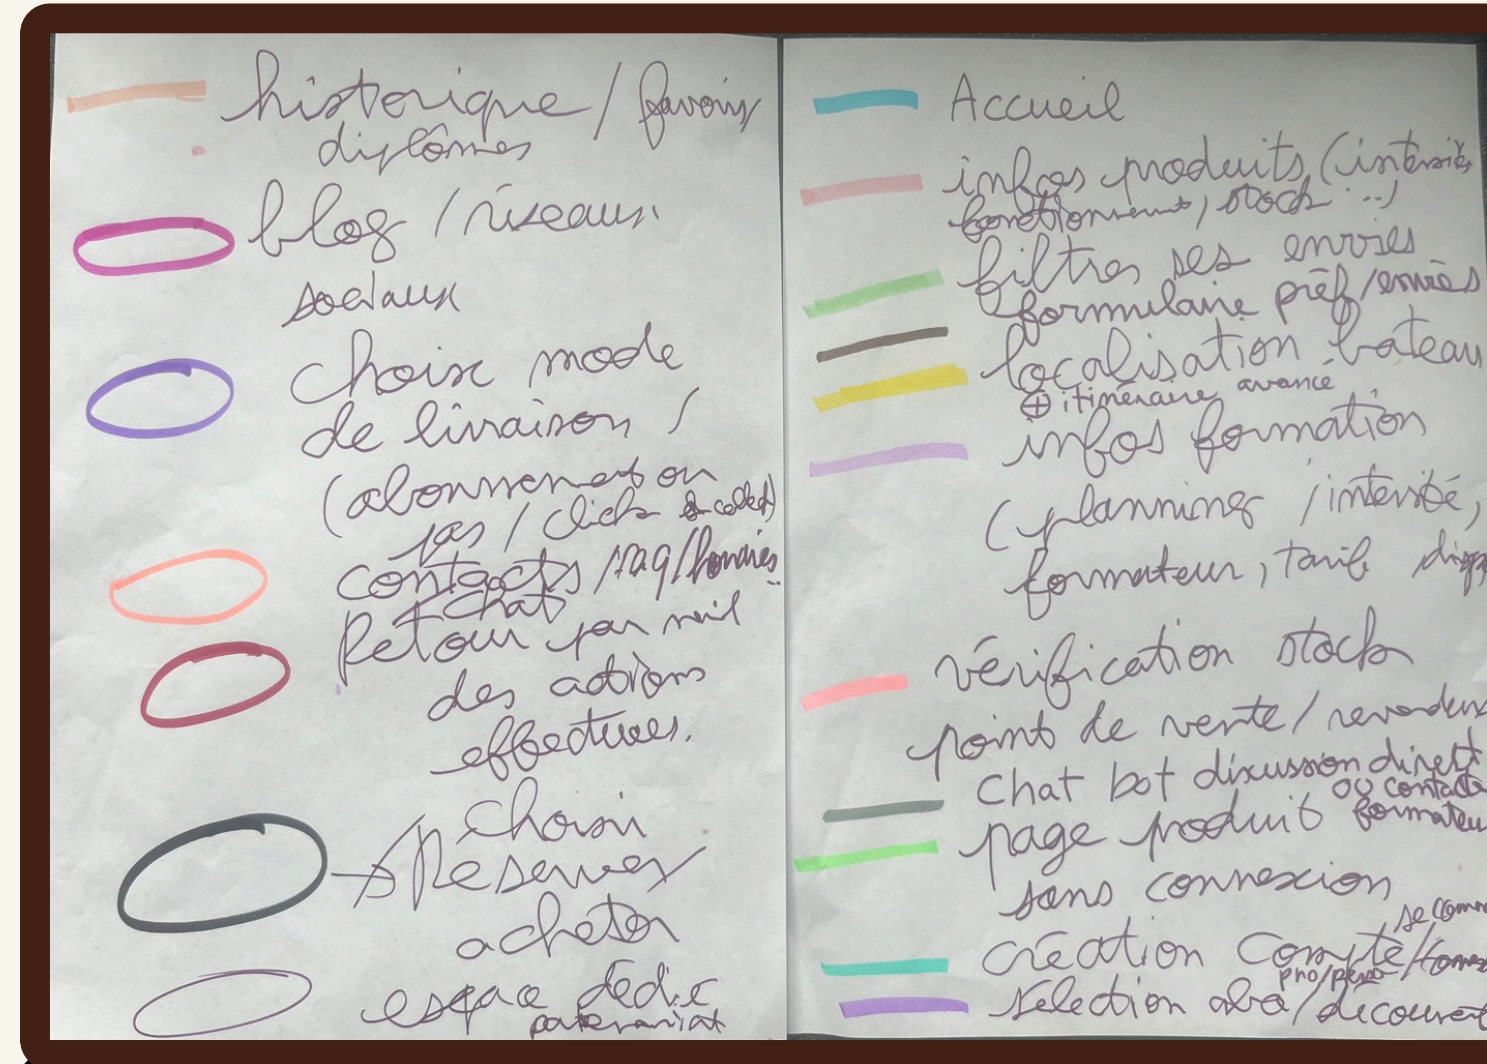 historique / favoris
diplômes
blog / réseaux
sociaux
choix mode
de livraison /
(abonnement ou
pas / click & collect)
contacts / FAQ / horaires
chat
Retour par mail
des actions
effectuées.
Choisir
Réserver
acheter
espace dédié
partenariat
Accueil
infos produits (intensité,
fonctionnement, stock ..)
filtres ses envies
formulaire préf / envies
localisation bateau
⊕ itinéraire avancé
infos formation
(planning / intensité,
formateur, tarif
vérification stock
point de vente / revendeurs
Chat bot discussion direct
ou contacte
formateur
page produit
sans connexion
se
création compte /
pro/perso
sélection abo / découverte